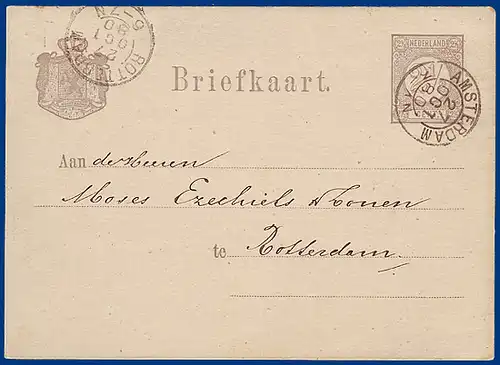 NEDERLAND
ROTTERDAM
AMSTERDAM
Briefkaart.
Aan de Heeren
Moses Ezechiels & Zonen
te Rotterdam.